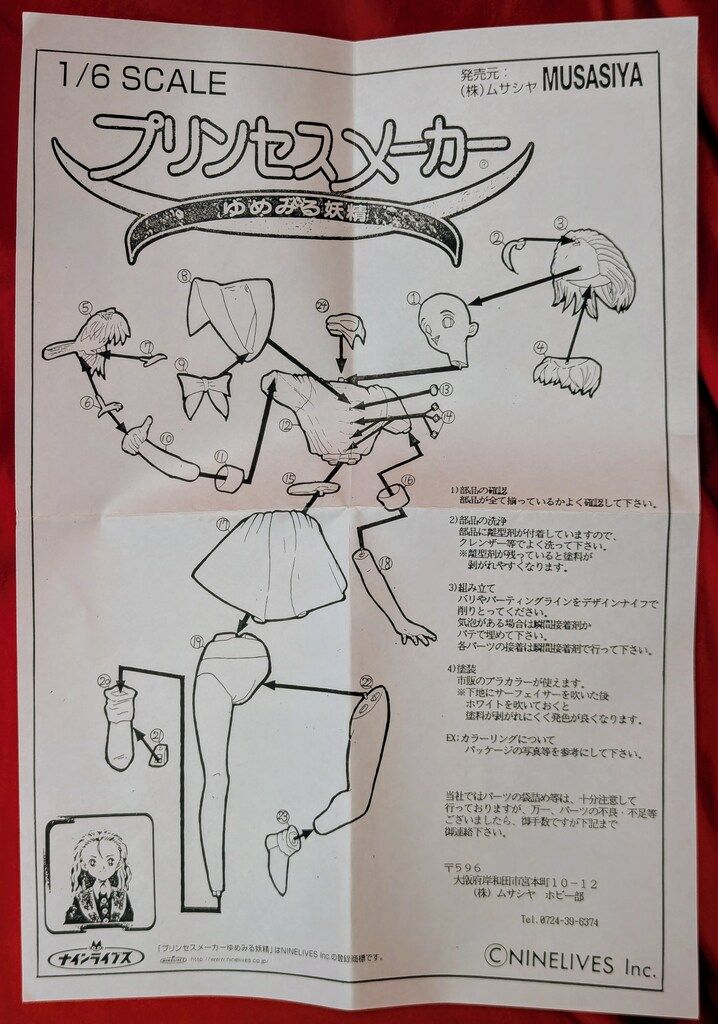 1/6 SCALE
発売元：
(株)ムサシヤ MUSASIYA
プリンセスメーカー®
ゆめみる妖精
①
②
③
④
⑤
⑥
⑦
⑧
⑨
⑩
⑪
⑫
⑬
⑭
⑮
⑯
⑰
⑱
⑲
⑳
㉑
㉒
㉓
㉔
1)部品の確認
部品が全て揃っているかよく確認して下さい。
2)部品の洗浄
部品に離型剤が付着していますので、
クレンザー等でよく洗って下さい。
※離型剤が残っていると塗料が
剥がれやすくなります。
3)組み立て
バリやパーティングラインをデザインナイフで
削りとってください。
気泡がある場合は瞬間接着剤か
パテで埋めて下さい。
各パーツの接着は瞬間接着剤で行って下さい。
4)塗装
市販のプラカラーが使えます。
※下地にサーフェイサーを吹いた後
ホワイトを吹いておくと
塗料が剥がれにくく発色が良くなります。
EX:カラーリングについて
パッケージの写真等を参考にして下さい。
当社ではパーツの袋詰め等は、十分注意して
行っておりますが、万一、パーツの不良・不足等
ございましたら、御手数ですが下記まで
御連絡下さい。
〒596
大阪府岸和田市宮本町10-12
(株) ムサシヤ ホビー部
Tel.0724-39-6374
ナインライブス
「プリンセスメーカーゆめみる妖精」はNINELIVES Inc.の登録商標です。
http://www.ninelives.co.jp/
©NINELIVES Inc.